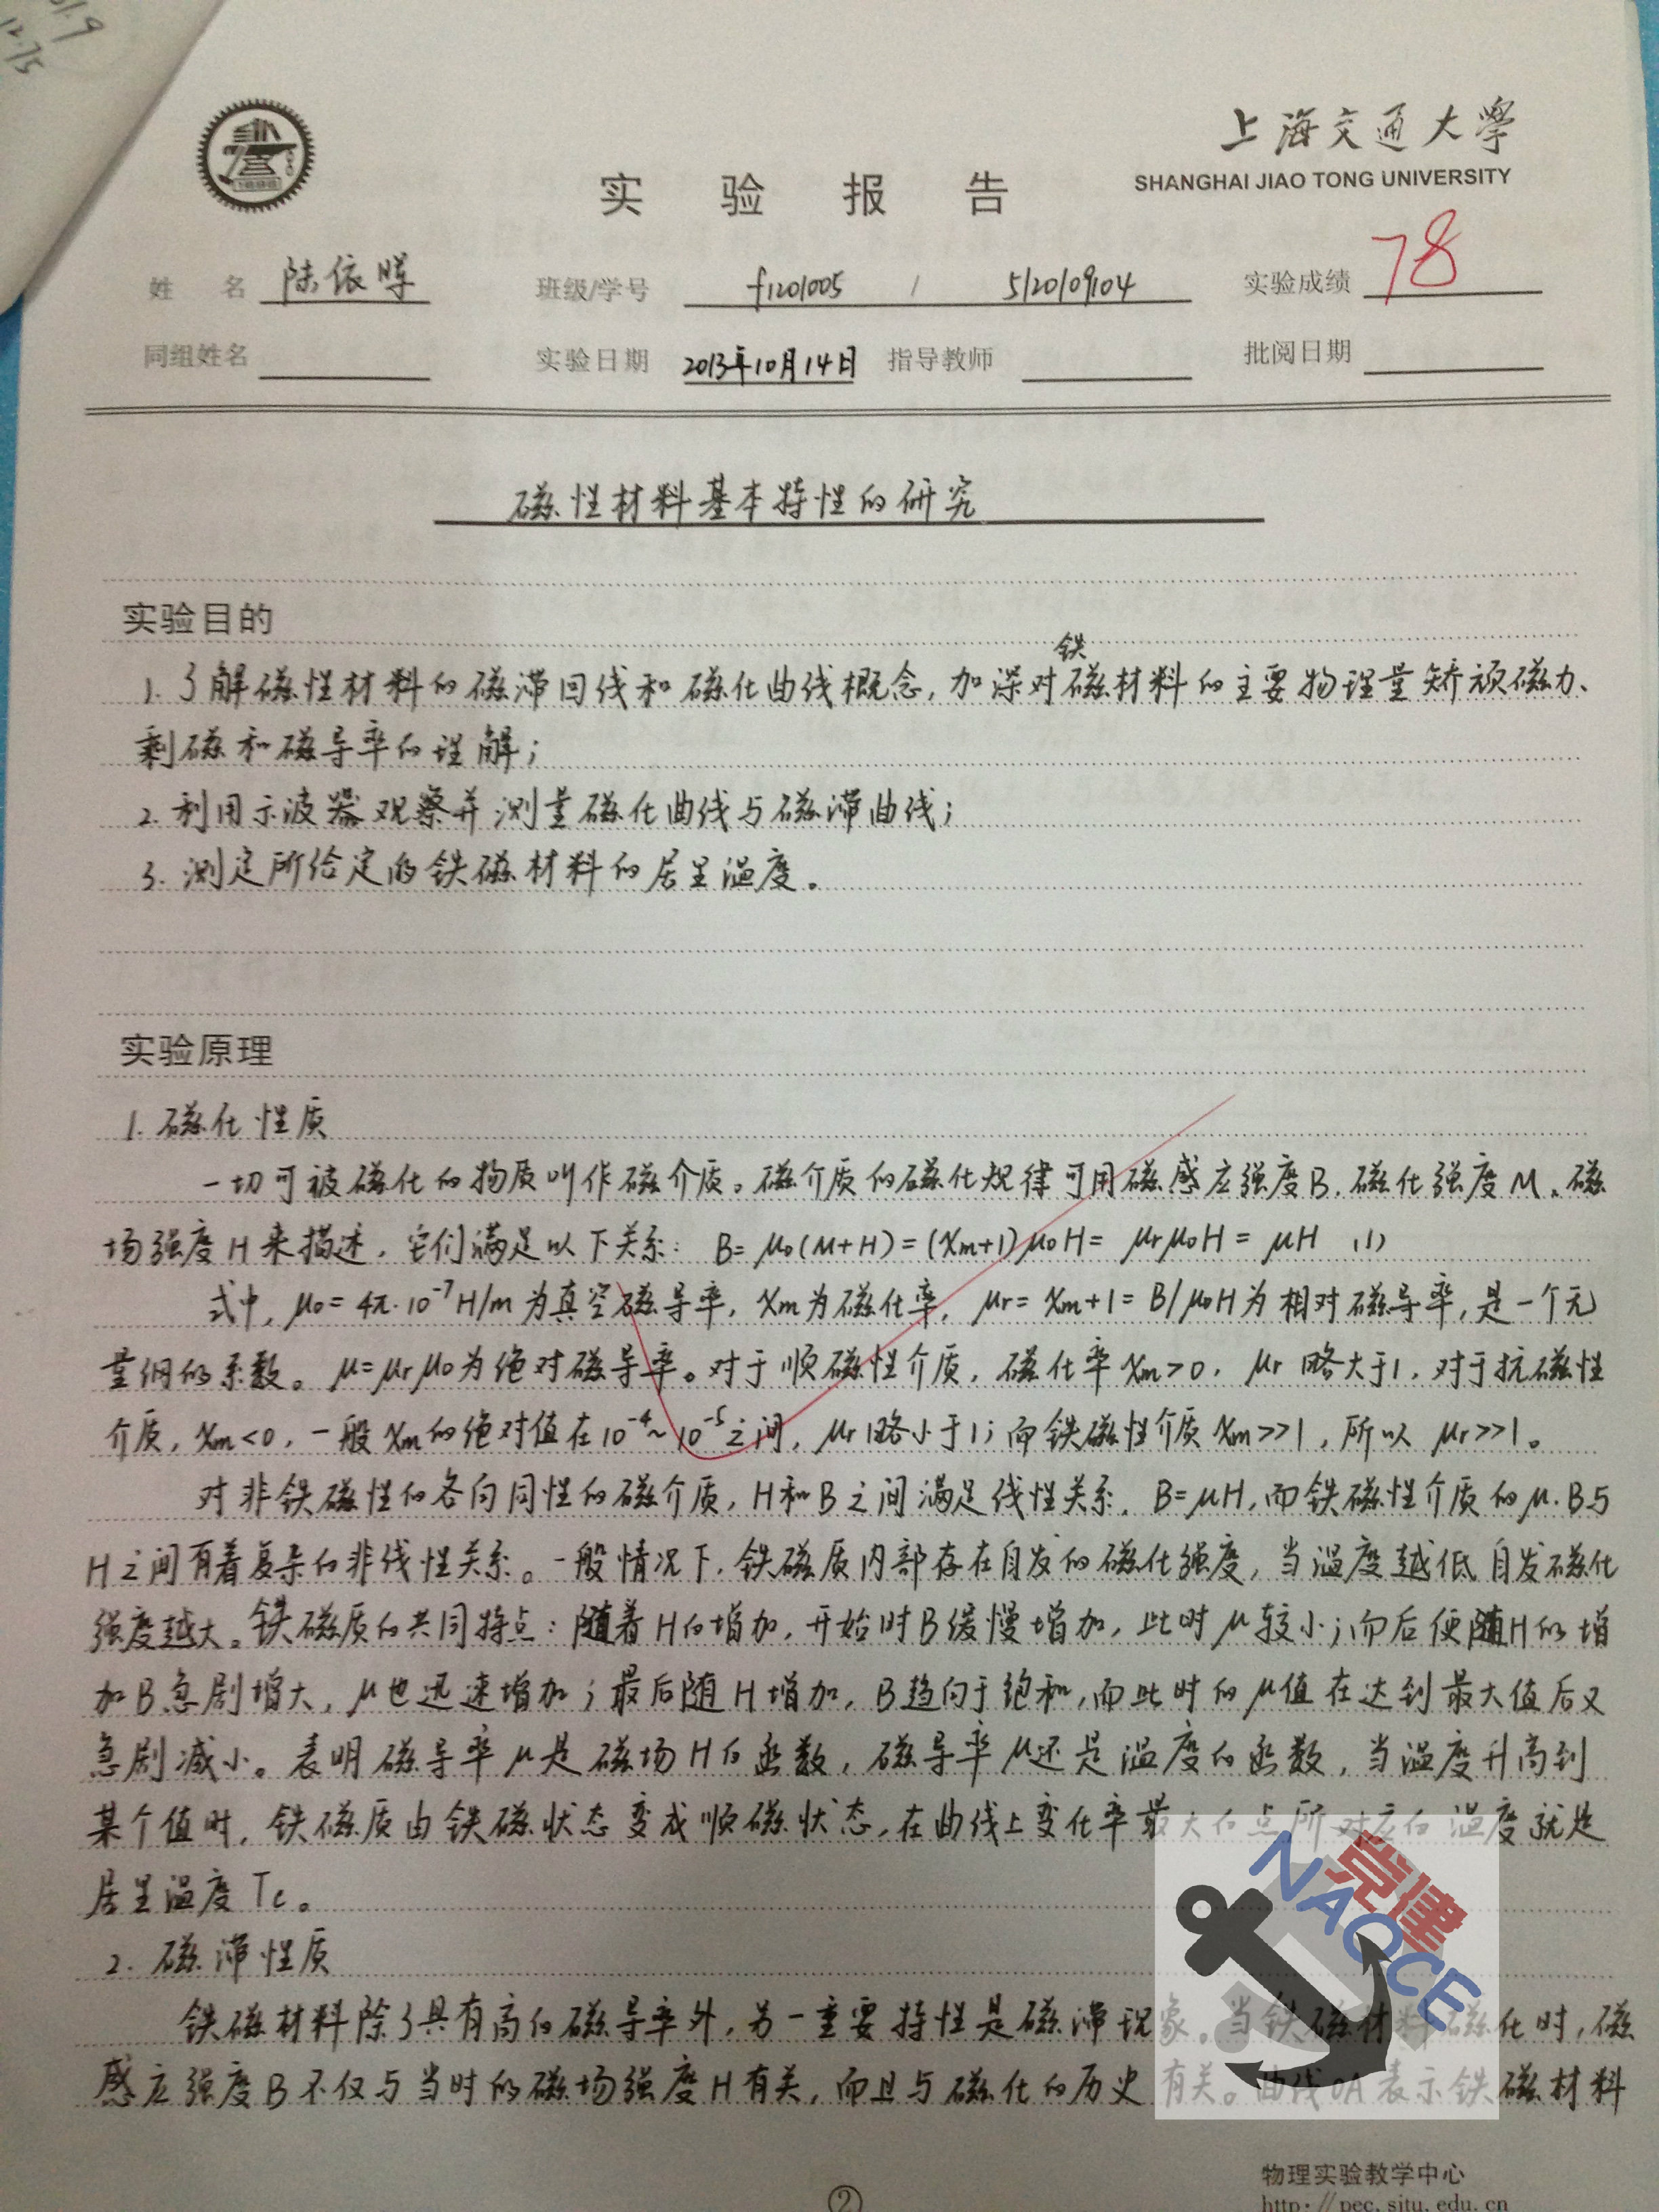 1.9
12.75
上海交通大學
SHANGHAI JIAO TONG UNIVERSITY
实验报告
姓名 陆依晖 班级/学号 f1201005 / 5120109104 实验成绩 78
同组姓名 实验日期 2013年10月14日 指导教师 批阅日期
磁性材料基本特性的研究
实验目的
铁
1. 了解磁性材料的磁滞回线和磁化曲线概念,加深对磁材料的主要物理量矫顽磁力、
剩磁和磁导率的理解;
2. 利用示波器观察并测量磁化曲线与磁滞曲线;
3. 测定所给定的铁磁材料的居里温度。
实验原理
1. 磁化性质
一切可被磁化的物质叫作磁介质。磁介质的磁化规律可用磁感应强度B、磁化强度M、磁
场强度H来描述,它们满足以下关系: B=μ₀(M+H)=(χm+1)μ₀H= μrμ₀H = μH (1)
式中,μ₀=4π·10⁻⁷H/m为真空磁导率,χm为磁化率,μr=χm+1=B/μ₀H为相对磁导率,是一个无
量纲的系数。μ=μrμ₀为绝对磁导率。对于顺磁性介质,磁化率χm>0,μr略大于1,对于抗磁性
介质,χm<0,一般χm的绝对值在10⁻⁴~10⁻⁵之间,μr略小于1;而铁磁性介质χm>>1,所以 μr>>1。
对非铁磁性的各向同性的磁介质,H和B之间满足线性关系,B=μH,而铁磁性介质的μ、B与
H之间有着复杂的非线性关系。一般情况下,铁磁质内部存在自发的磁化强度,当温度越低自发磁化
强度越大。铁磁质的共同特点:随着H的增加,开始时B缓慢增加,此时μ较小;而后便随H的增
加B急剧增大,μ也迅速增加;最后随H增加,B趋向于饱和,而此时的μ值在达到最大值后又
急剧减小。表明磁导率μ是磁场H的函数,磁导率μ还是温度的函数,当温度升高到
某个值时,铁磁质由铁磁状态变成顺磁状态,在曲线上变化率最大的点所对应的温度就是
居里温度Tc。
2. 磁滞性质
铁磁材料除了具有高的磁导率外,另一重要特性是磁滞现象。当铁磁材料磁化时,磁
感应强度B不仅与当时的磁场强度H有关,而且与磁化的历史有关。曲线OA表示铁磁材料
党建
NAOCE
②
物理实验教学中心
http://pec.sjtu.edu.cn